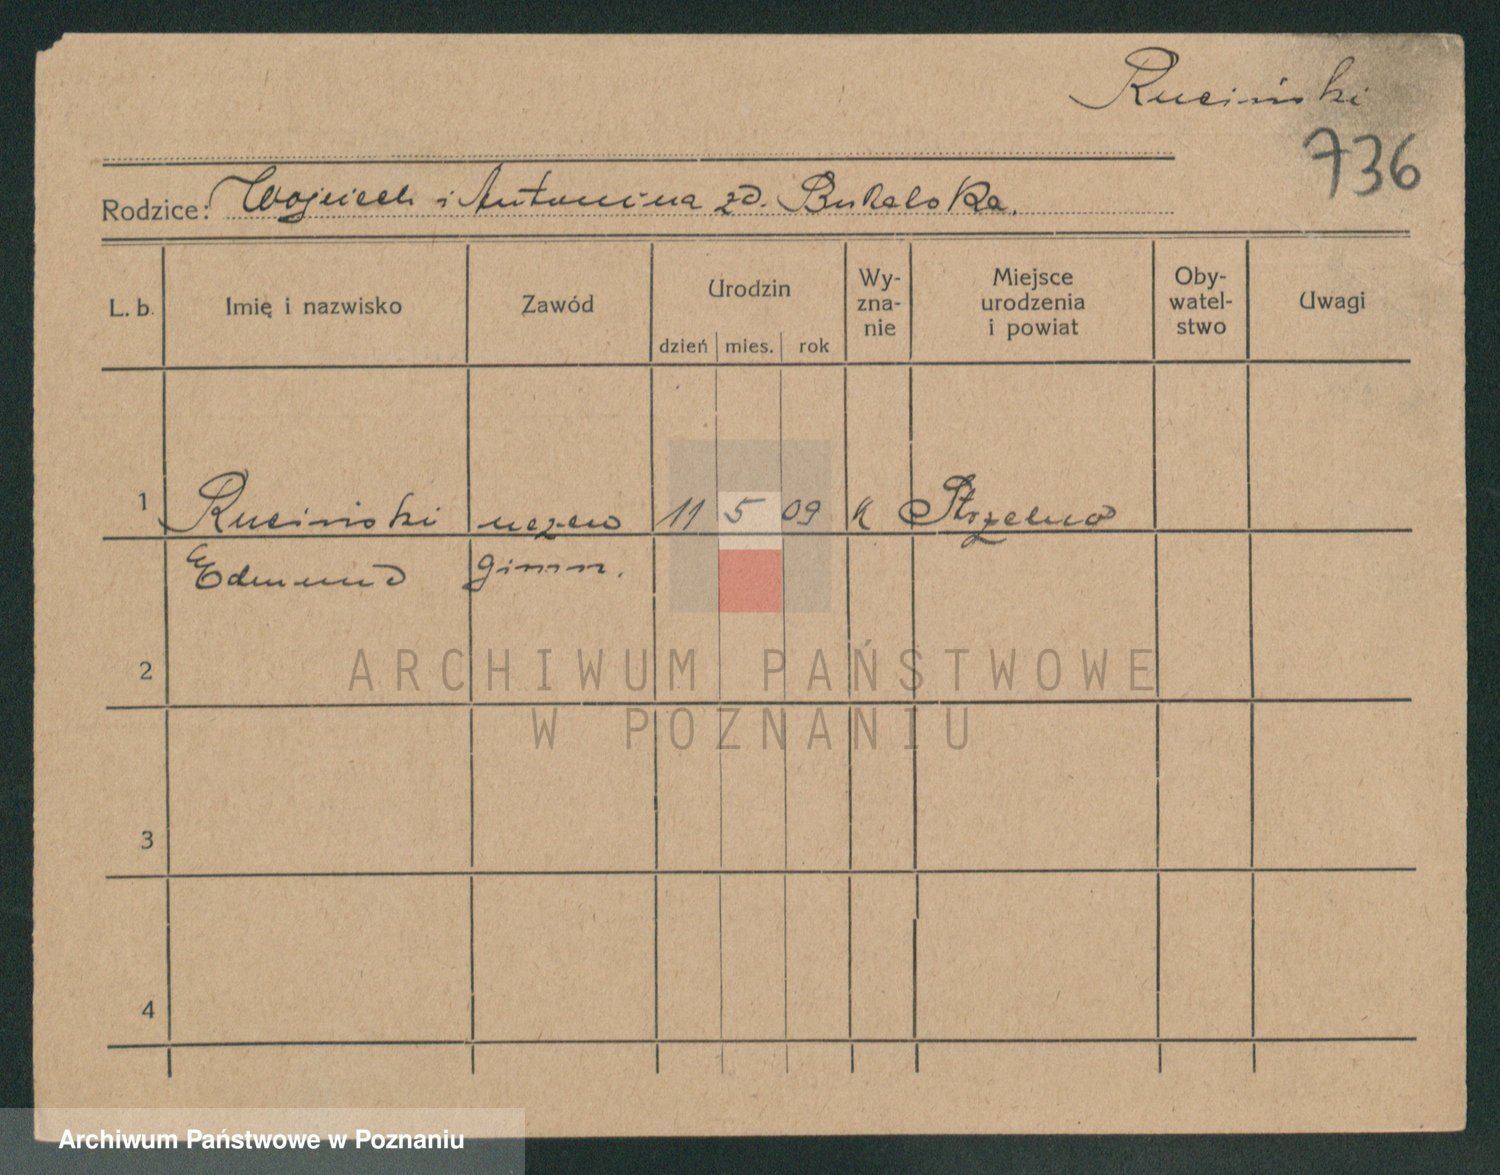 Ruciński
736
Rodzice: Wojciech i Antonina zd. Bukalska.
L. b. Imię i nazwisko Zawód Urodzin Wy-zna-nie Miejsce urodzenia i powiat Oby-watel-stwo Uwagi
dzień mies. rok
1 Ruciński uczeń 11 5 09 k Strzelno
Edmund gimn.
2
ARCHIWUM PAŃSTWOWE
W POZNANIU
3
4
Archiwum Państwowe w Poznaniu